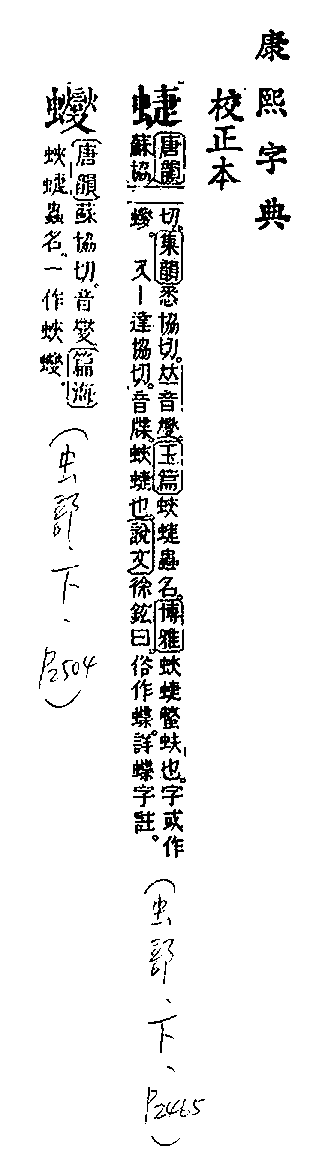 康熙字典
校正本
蜨
唐韻蘇協
切。集韻悉協切。𠀤音燮。玉篇蛺蜨蟲名。博雅蛺蜨蟞蚨也。字或作
䗥。又一達協切。音牒。蛺蜨也。說文徐鉉曰。俗作蝶。詳蝶字註。
(虫部、下、P2465)
䗥
唐韻蘇協切。音燮。篇海
蛺蜨蟲名。一作蛺䗥。
(虫部、下、P2504)